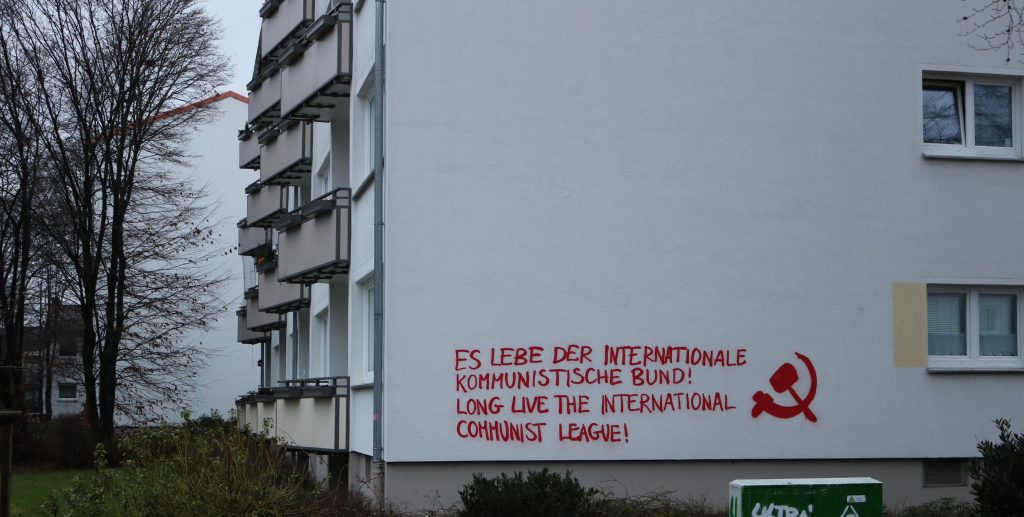 ES LEBE DER INTERNATIONALE
KOMMUNISTISCHE BUND!
LONG LIVE THE INTERNATIONAL
COMMUNIST LEAGUE!
ULTRA'